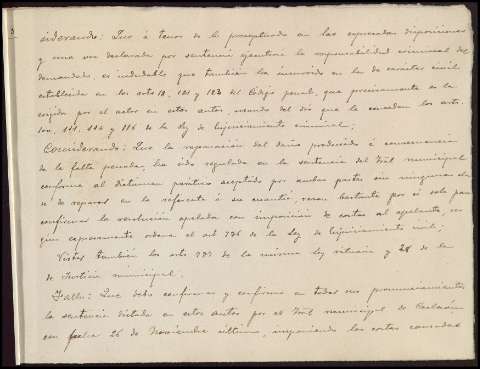 siderando: Que á tenor de lo preceptuado en las expresadas disposiciones
y una vez declarada por sentencia ejecutoria la responsabilidad criminal del
demandado, es indudable que también ha incurrido en la de carácter civil
establecida en los arts 18, 121 y 123 del Código penal, que precisamente es la
exigida por el actor en estos autos, usando del día que le conceden los arts.
100, 111, 114 y 116 de la ley de Enjuiciamiento criminal;
Considerando: Que la reparación del daño producido á consecuencia
de la falta penada, ha sido regulada en la sentencia del Tribl municipal
conforme al dictamen pericial aceptado por ambas partes sin ninguna
de reparos en lo referente á su cuantía, razón bastante por si sola para
confirmar la resolución apelada con imposición de costas al apelante, se
gun expresamente ordena el art 736 de la Ley de Enjuiciamiento civil;
Vistos también los arts 733 de la misma ley rituaria y 28 de la
de Justicia municipal;
Fallo: Que debo confirmar y confirmo en todos sus pronunciamientos
la sentencia dictada en estos autos por el Tribl municipal de
con fecha 26 de Noviembre último, imponiendo las costas causadas